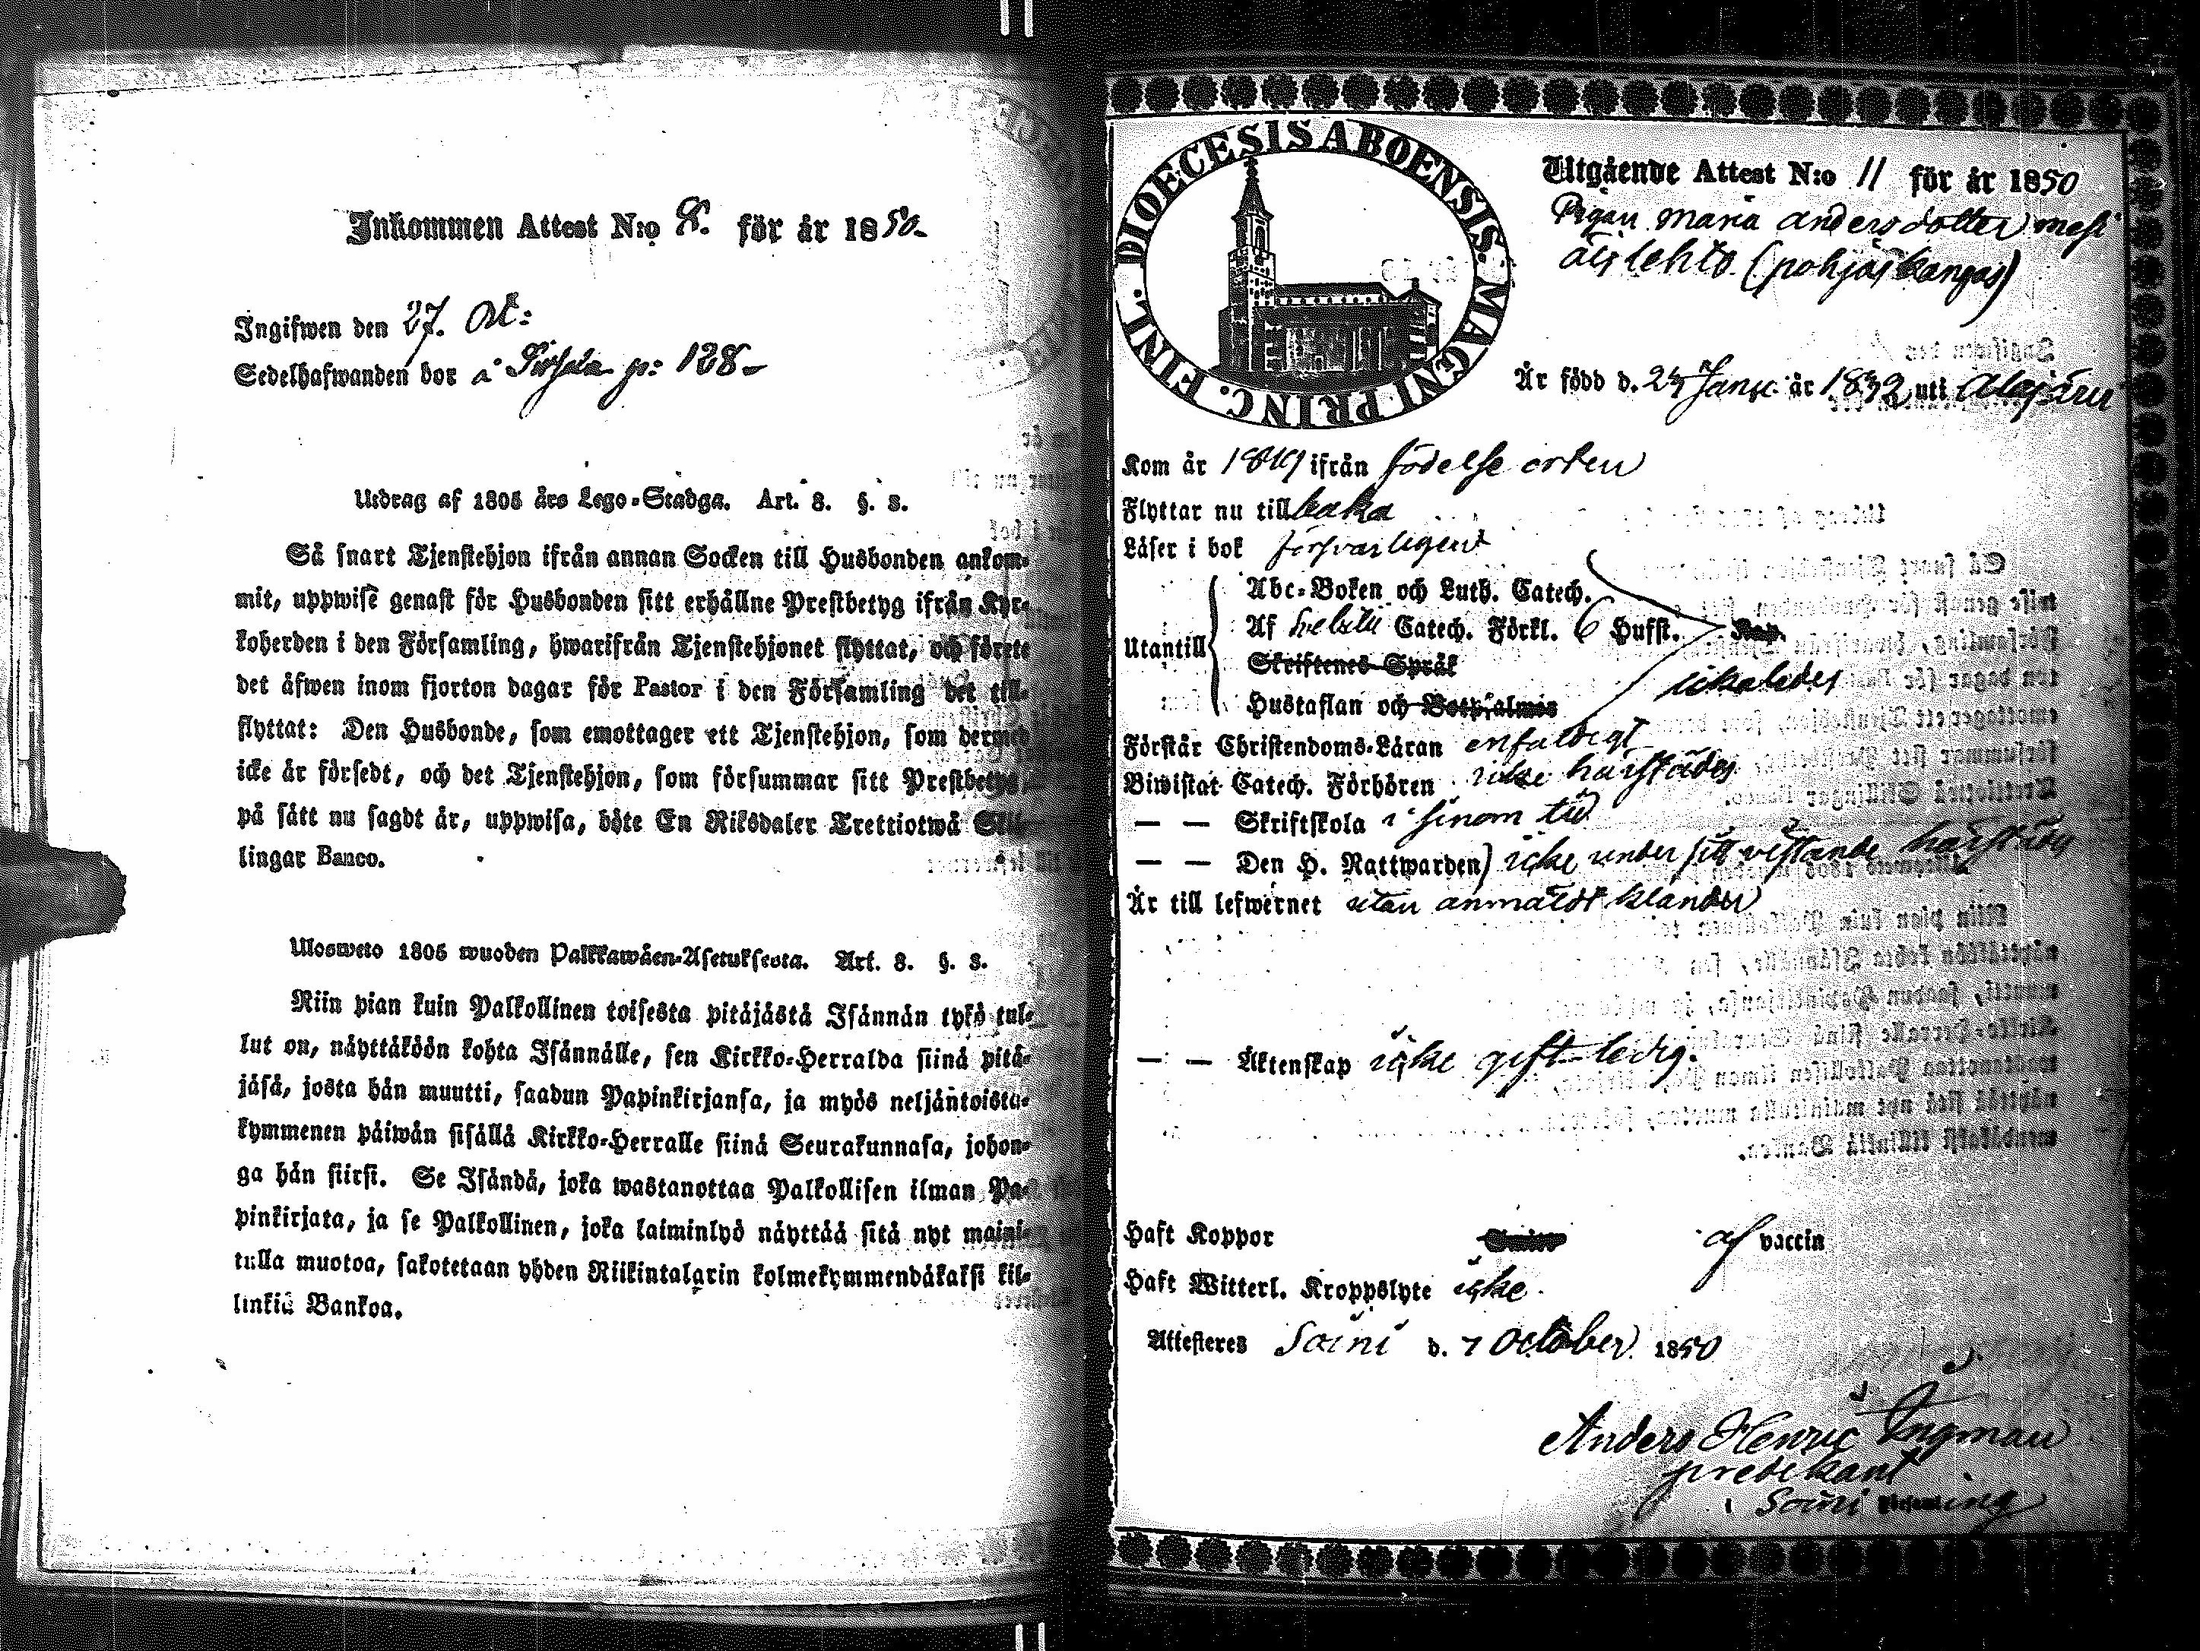 Inkommen Attest N:o 8. för år 1850.
Ingifwen den 27. Okt:
Sedelhafwanden bor å p: 128
Utdrag af 1805 års Lego-Stadga. Art. 8. §. 3.
Så snart Tjenstehjon ifrån annan Socken till Husbonden ankom-
mit, uppwise genast för Husbonden sitt erhållne Prestbetyg ifrån Kyr-
koherden i den Församling, hwarifrån Tjenstehjonet flyttat, och förete
det äfwen inom fjorton dagar för Pastor i den Församling det till-
flyttat: Den Husbonde, som emottager ett Tjenstehjon, som dermed
icke är försedt, och det Tjenstehjon, som försummar sitt Prestbetyg,
på sätt nu sagdt är, uppwisa, böte En Riksdaler Trettiotwå Skil-
lingar Banco.
Ulosweto 1805 wuoden Palkkawäen-Asetuksesta. Art. 8. §. 3.
Niin pian kuin Palkollinen toisesta pitäjästä Isännän tykö tul-
lut on, näyttäköön kohta Isännälle, sen Kirkko-Herralda siinä pitä-
jäsä, josta hän muutti, saadun Papinkirjansa, ja myös neljäntoista-
kymmenen päiwän sisällä Kirkko-Herralle siinä Seurakunnasa, johon-
ga hän siirsi. Se Isändä, joka wastanottaa Palkollisen ilman Pa-
pinkirjata, ja se Palkollinen, joka laiminlyö näyttää sitä nyt maini-
tulla muotoa, sakotetaan yhden Riikintalarin kolmekymmendäkaksi kil-
linkiä Bankoa.
DIOECESIS ABOENSIS. MAGNI PRINC. FINL.
Utgående Attest N:o 11 för år 1850
Pigan maria andersdotter mesi
äislehto (pohjaskangas)
Är född d. 24 Janu: år 1832 uti Alajärvi
Kom år 1849 ifrån födelse orten
Flyttar nu till baka
Läser i bok försvarligent
Utantill
Abc-Boken och Luth. Catech.
Af Svebilii Catech. Förkl. 6 Hufst.
Skriftenes Språk
ickaledes
Hustaflan och Botpsalmes
Förstår Christendoms-Läran enfaldigt
Biwistat Catech. Förhören icke härstädes
— — Skriftskola i sinom tid
— — Den H. Nattwarden) icke under sitt vistande härstädes
Är till lefwernet utan anmäldt klander
— — Äktenskap icke gift-ledig.
Haft Koppor af vaccin
Haft Witterl. Kroppslyte icke.
Attesteres Soini d. 7 October 1850
Anders Henric Ingman
predikant
i Soini